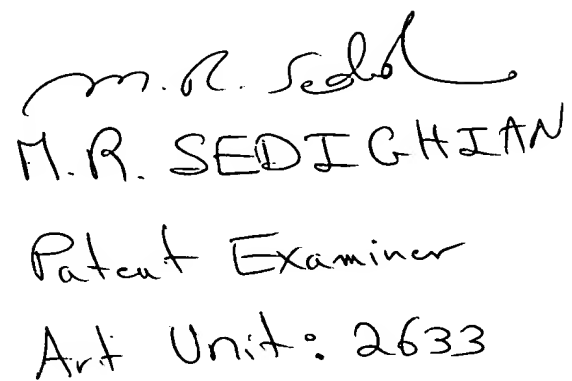 M. R. Sedid
M.R. SEDIGHIAN
Patent Examiner
Art Unit: 2633